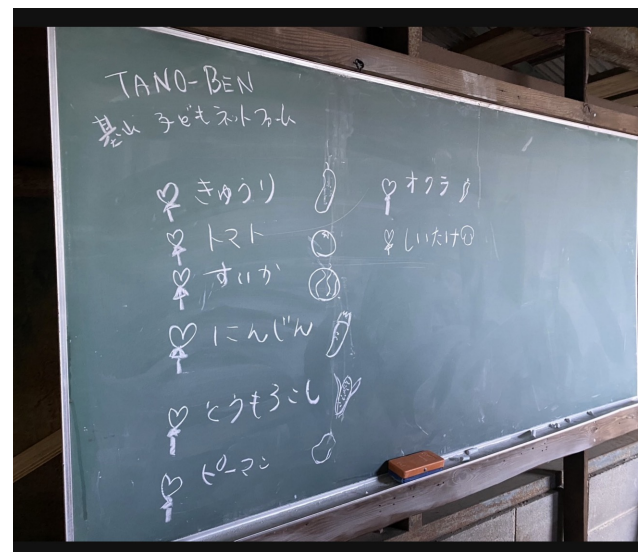 TANO-BEN
基山 子どもネットファーム
きゅうり
トマト
すいか
にんじん
とうもろこし
ピーマン
オクラ
しいたけ